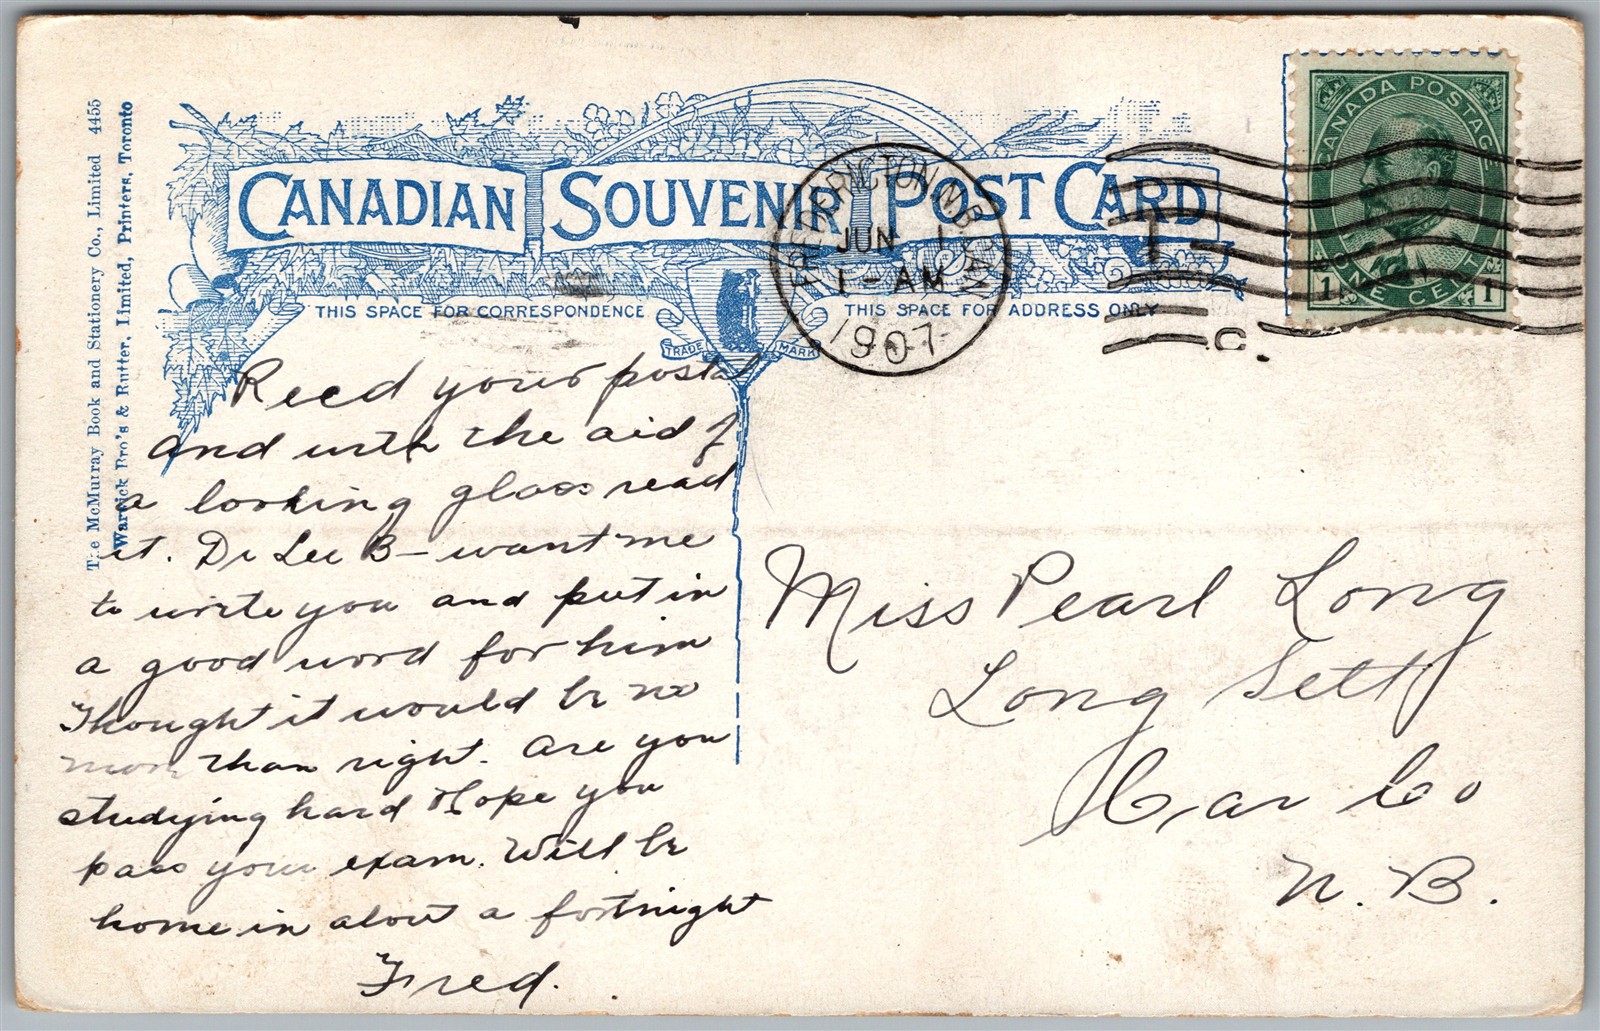 The McMurray Book and Stationery Co., Limited 4455
Warwick Bro's & Rutter, Limited, Printers, Toronto
CANADIAN SOUVENIR POST CARD
THIS SPACE FOR CORRESPONDENCE
THIS SPACE FOR ADDRESS ONLY
TRADE MARK
FREDERICTON, N.B. CAN.
JUN 1
1-AM
1907
CANADA POSTAGE
1 ONE CENT 1
Recd your postal
and with the aid of
a looking glass read
it. Lee B- want me
to write you and put in
a good word for him
Thought it would be no
more than right. Are you
studying hard Hope you
pass your exam. Will be
home in about a fortnight
Fred.
Miss Pearl Long
Long Sett
Car Co
N. B.